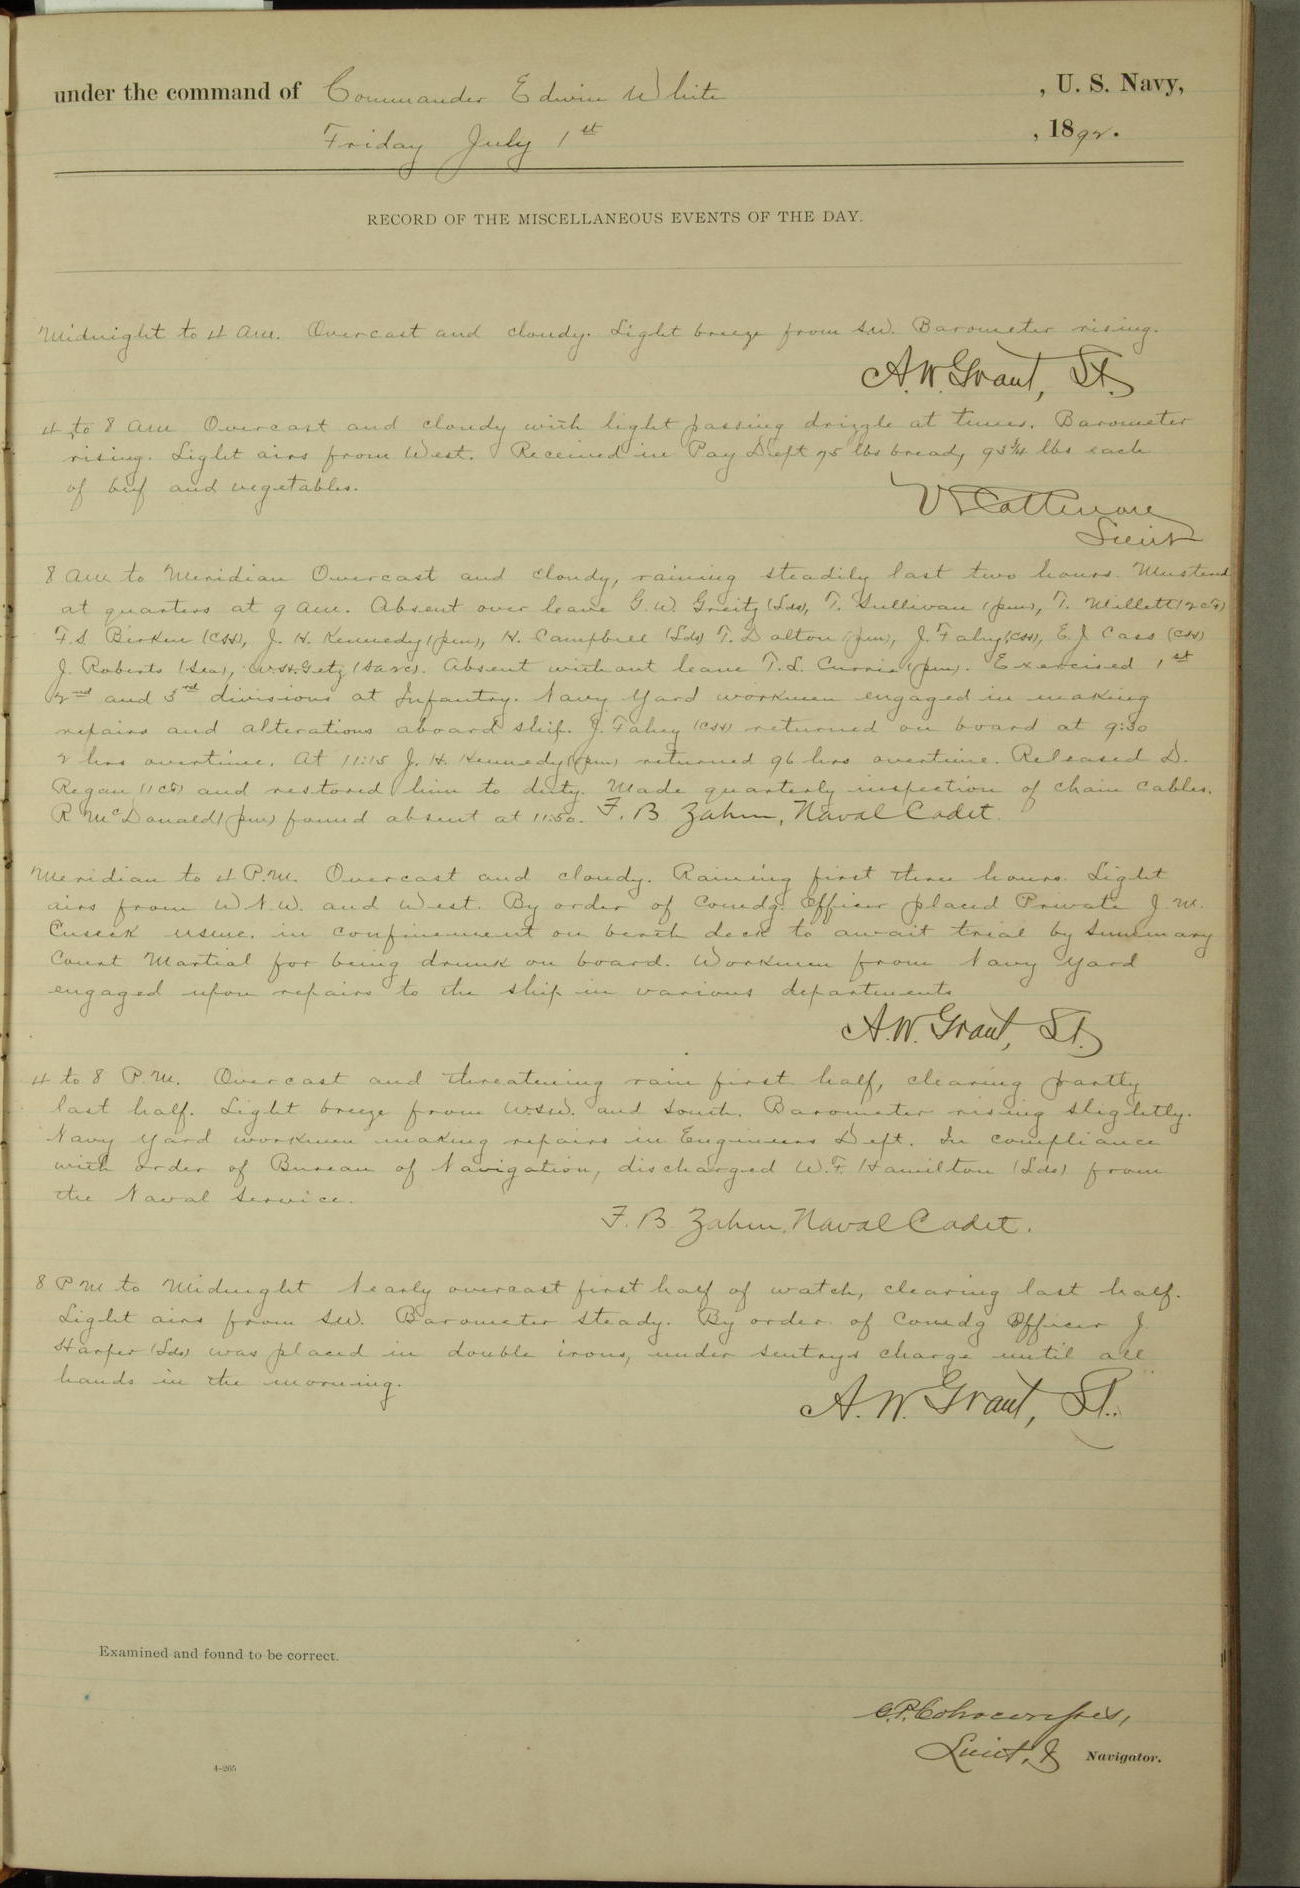 under the command of Commander Edwin White , U. S. Navy,
Friday July 1st , 1892.
RECORD OF THE MISCELLANEOUS EVENTS OF THE DAY.
Midnight to 4 am. Overcast and cloudy. Light breeze from S.W. Barometer rising.
A. W. Grant, Lt.
4 to 8 am Overcast and cloudy with light passing drizzle at times. Barometer
rising. Light airs from West. Received in Pay Dept 75 lbs bread, 93 3/4 lbs each
of beef and vegetables.
Lieut
8 am to Meridian Overcast and cloudy, raining steadily last two hours. Mustered
at quarters at 9 am. Absent over leave G. W. Greitz (Lds), T. Sullivan (pm), T. Millett (2cf)
F. S. Birken (CSS), J. H. Kennedy (pm), H. Campbell (Lds) T. Dalton (pm), J. Fahey (CSS), E. J. Cass (CSS)
J. Roberts (Sea), W. H. Getz (Sa2c). Absent without leave T. L. Currie (pm). Exercised 1st
2nd and 3rd divisions at Infantry. Navy Yard workmen engaged in making
repairs and alterations aboard ship. J. Fahey (CSS) returned on board at 9:30
2 hrs overtime. At 11:15 J. H. Kennedy (pm) returned 96 hrs overtime. Released D.
Regan (1cf) and restored him to duty. Made quarterly inspection of chain cables.
R McDonald (pm) found absent at 11:50. F. B. Zahm, Naval Cadet.
Meridian to 4 P.M. Overcast and cloudy. Raining first three hours. Light
airs from W.N.W. and West. By order of Comdg. Officer placed Private J. M.
Cusick usmc. in confinement on berth deck to await trial by Summary
Court Martial for being drunk on board. Workmen from Navy Yard
engaged upon repairs to the ship in various departments
A. W. Grant, Lt.
4 to 8 P.M. Overcast and threatening rain first half, clearing partly
last half. Light breeze from WSW. and South. Barometer rising slightly.
Navy Yard workmen making repairs in Engineers Dept. In compliance
with order of Bureau of Navigation, discharged W. F. Hamilton (Lds) from
the Naval Service.
F. B. Zahm, Naval Cadet.
8 PM to Midnight Nearly overcast first half of watch, clearing last half.
Light airs from SW. Barometer steady. By order of Comdg Officer J.
Harper (Lds) was placed in double irons, under sentrys charge until all
hands in the morning.
A. W. Grant, Lt.
Examined and found to be correct.
Lieut. & Navigator.
4-265